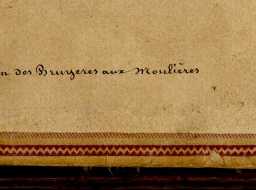 n des Bruyeres aux Moulières